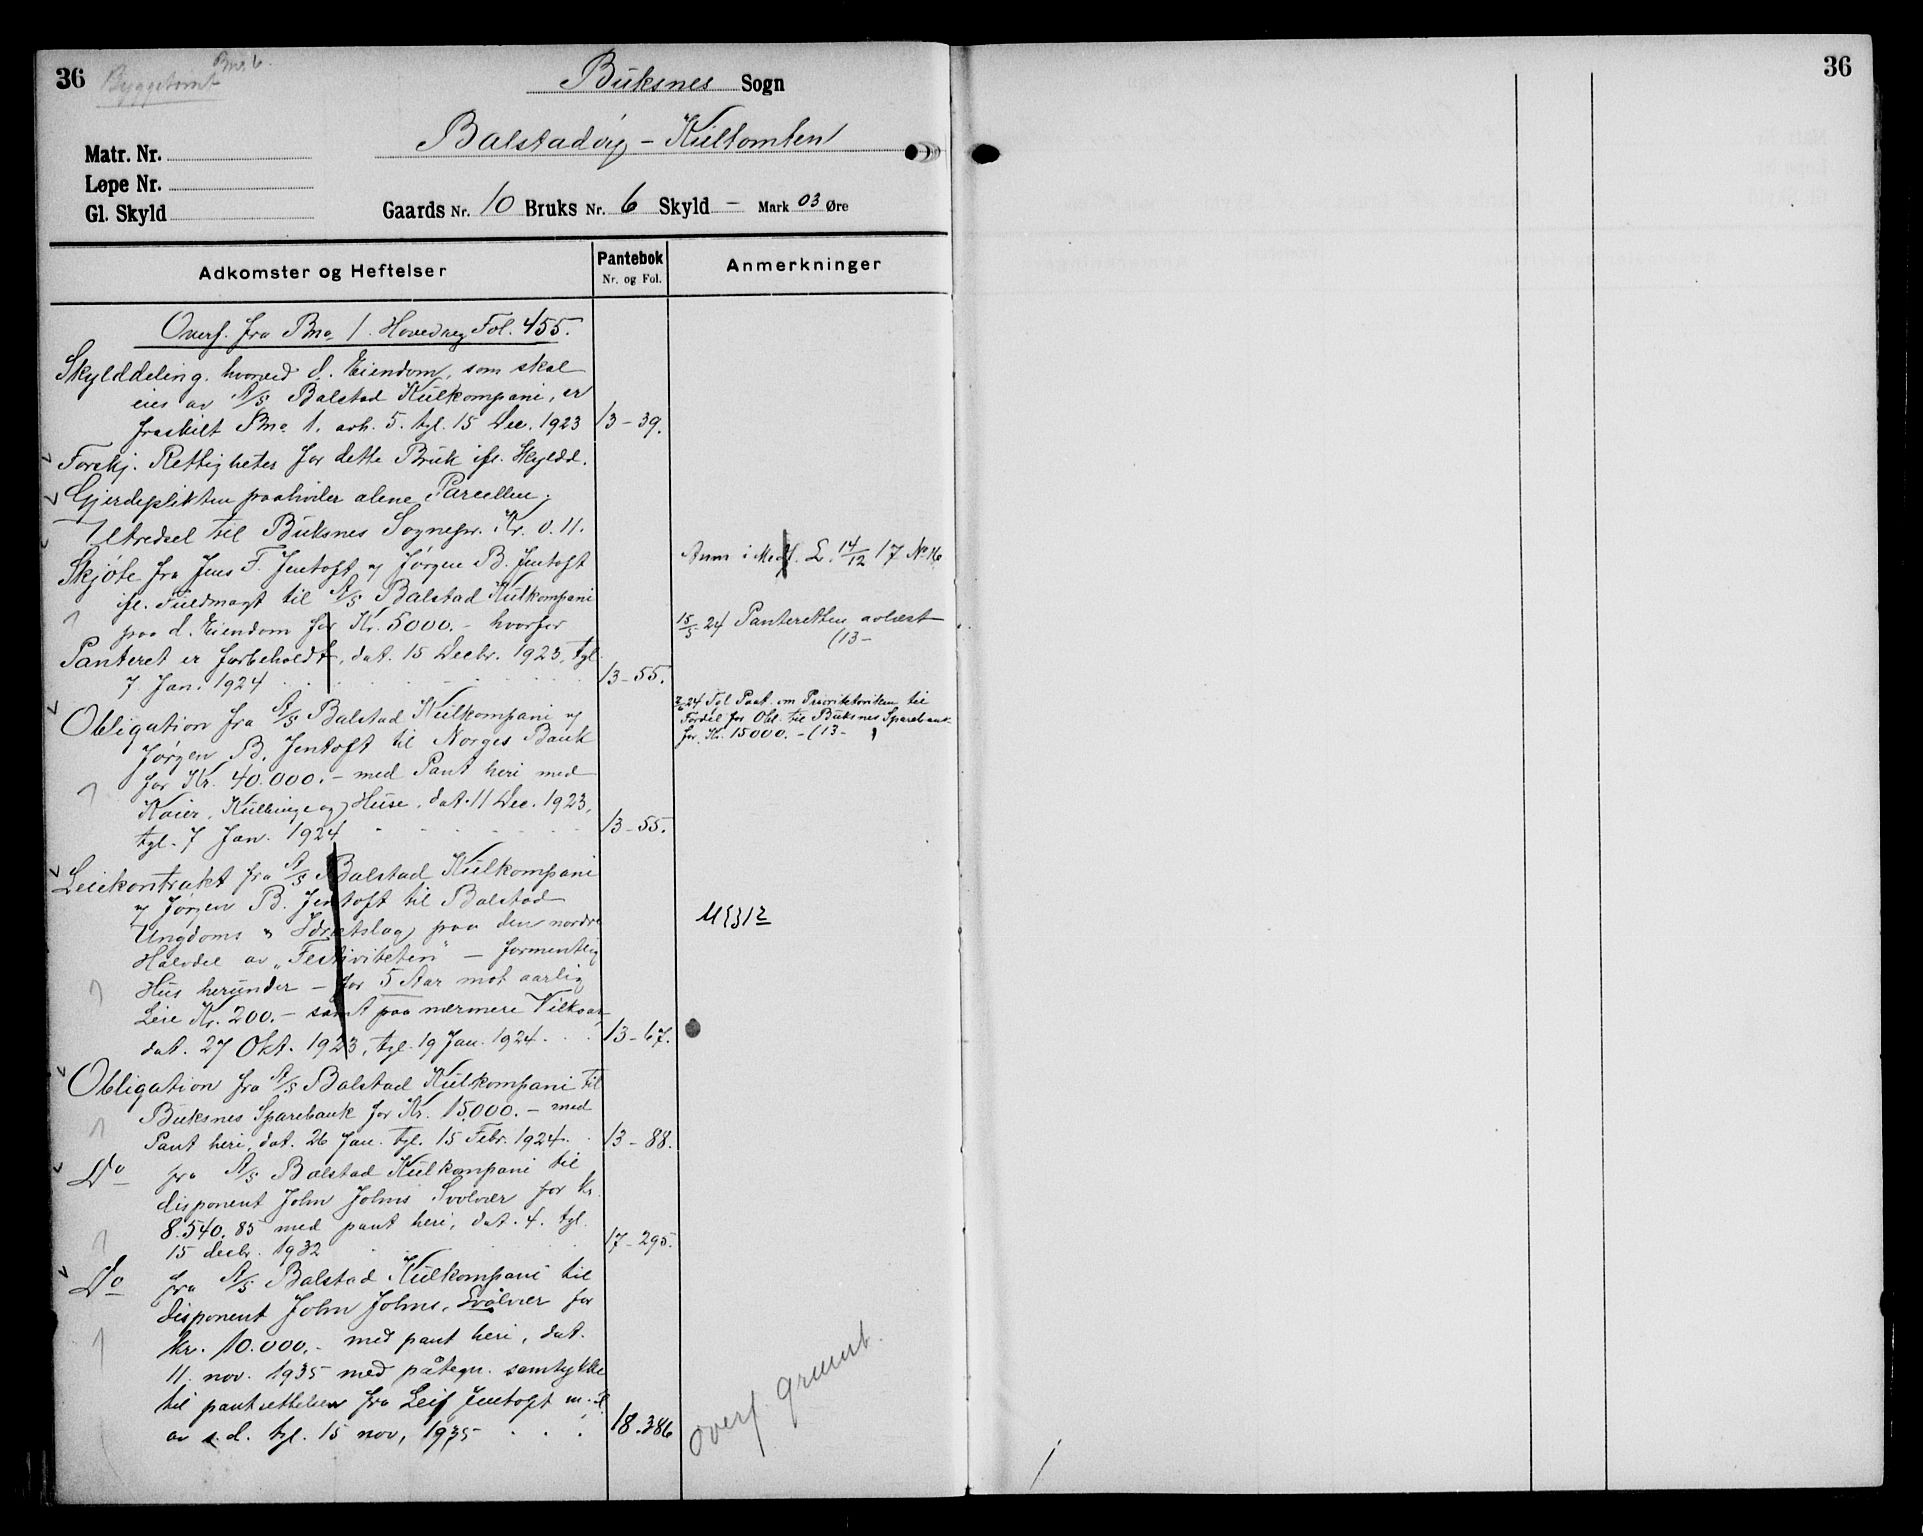 36
Byggetomt
Bno. 6.
Buksnes Sogn
Balstadøy - Kultomten
Matr. Nr.
Løpe Nr.
Gl. Skyld
Gaards Nr. 10 Bruks Nr. 6 Skyld - Mark 03 Øre
Adkomster og Heftelser
Pantebok
Nr. og Fol.
Anmerkninger
Overf. fra Bno 1. Hovedreg Fol. 455.
Skylddeling. hvorved d. Eiendom, som skal
eies av A/S Balstad Kulkompani, er
fraskilt Bno 1. avh. 5. tgl. 15 Dec. 1923 13-39.
Forskj. Rettigheter for dette Bruk ifl. Skyldd.
Gjerdeplikten paahviler alene Parcellen.
Utredsel til Buksnes Sognepr. Kr. 0.11.
Skjøte fra Jens F. Jentoft og Jørgen B. Jentoft
ifl. Fuldmagt til A/S Balstad Kulkompani
paa d. Eiendom for Kr. 5000.- hvorfor
Panteret er forbeholdt, dat. 15 Decbr. 1923, tgl.
7 Jan. 1924 13-55.
Anm i M. L. 14/12 17 No 16
15/5 24 Panteretten avlæst
(13-
24 Tgl Paat. om Prioritetsviken til
Fordel for Obl. til Buksnes Sparebank
for Kr. 15000.- (13-
Obligation fra A/S Balstad Kulkompani og
Jørgen B. Jentoft til Norges Bank
for Kr. 40.000.- med Pant heri med
Kaier, Kulbinge og Huse, dat. 11 Dec. 1923,
tgl. 7 Jan. 1924 13-55.
Leiekontrakt fra A/S Balstad Kulkompani
og Jørgen B. Jentoft til Balstad
Ungdoms & Idrætslag paa den nordre
Halvdel av "Festiviteten" - formentlig
Hus herunder - for 5 Aar mot aarlig
Leie Kr. 200.- samt paa nærmere Vilkaar,
dat. 27 Okt. 1923, tgl. 19 Jan. 1924. 13-67.
Obligation fra A/S Balstad Kulkompani til
Buksnes Sparebank for Kr. 15000.- med
Pant heri, dat. 26 Jan. tgl. 15 Febr. 1924. 13-88.
Do fra A/S Balstad Kulkompani til
disponent John Johns Svolvær for kr.
8.540,85 med pant heri, dat. 4. tgl.
15 decbr. 1932 17-295.
Do fra A/S Balstad Kulkompani til
disponent John Johns, Svolvær for
kr. 10.000,- med pant heri, dat.
11. nov. 1935 med påtegn. samtykke
til pantsettelsen fra Leif Jentoft m. fl.
av s.d. tgl. 15 nov, 1935 18.386
Overf. grunnb.
36